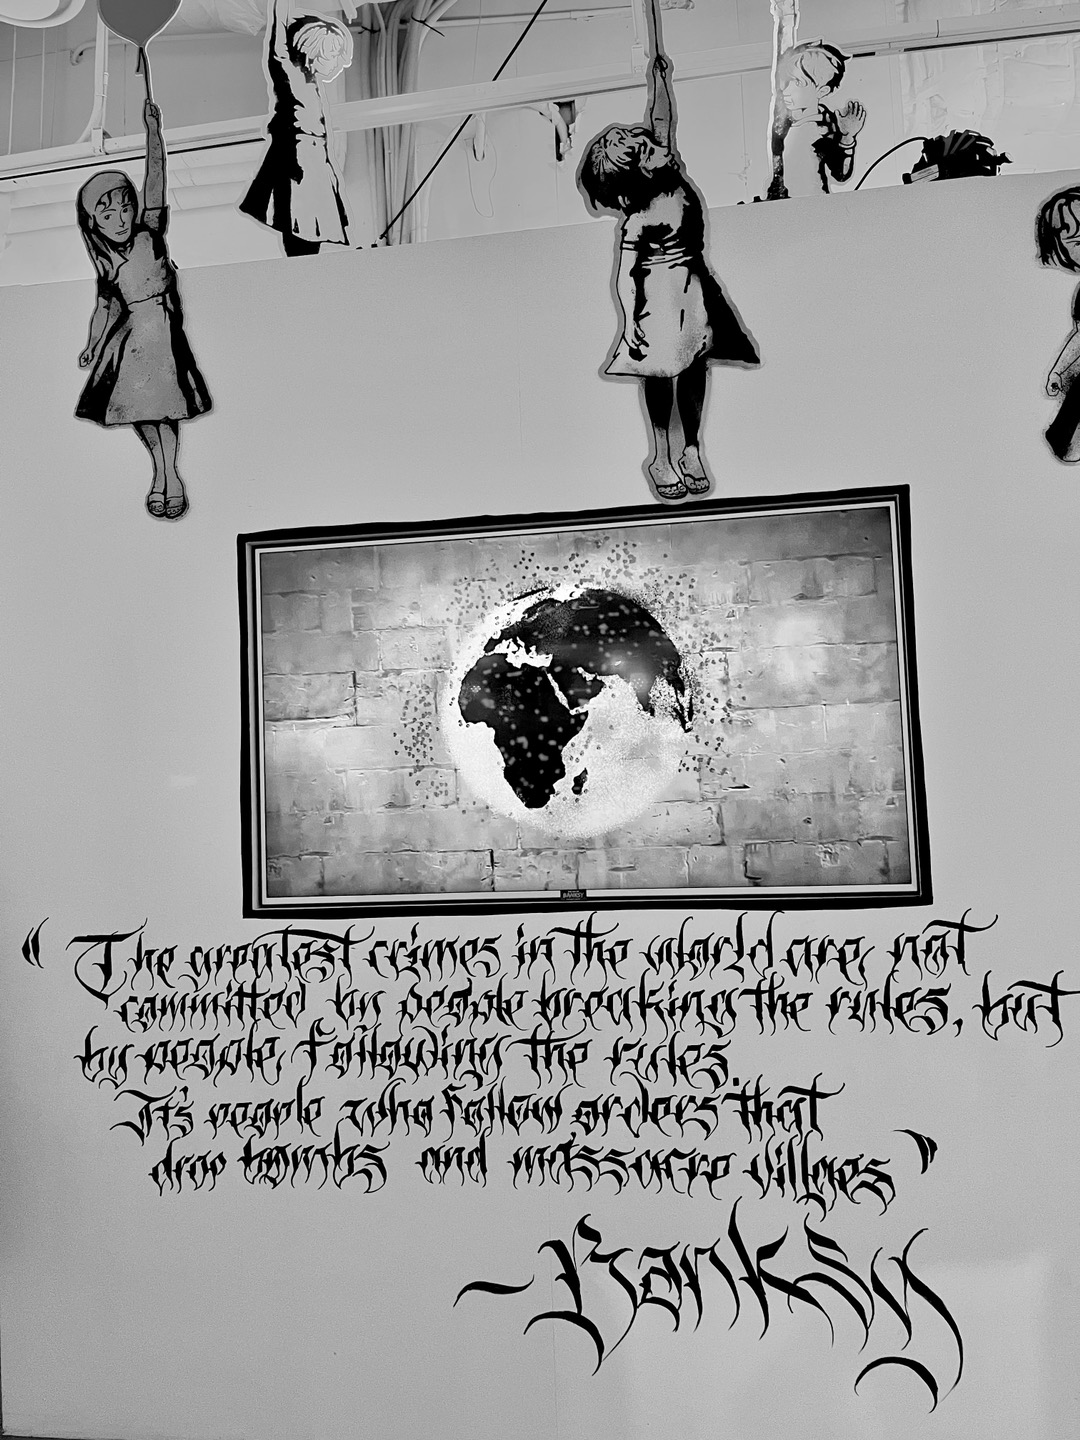 BANKSY
"The greatest crimes in the world are, not
committed by people breaking the rules, but
by people, following the rules.
It's people who follow orders that
drop bombs and massacre villges"
- Banksy